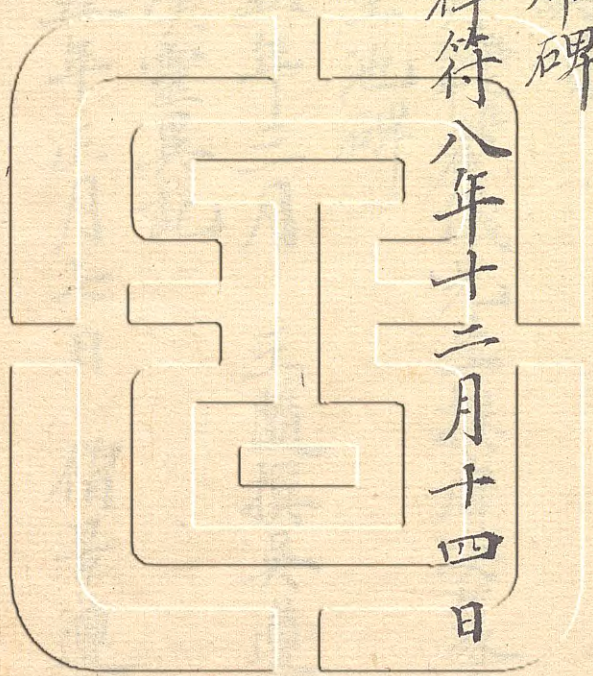 碑
祥符八年十二月十四日